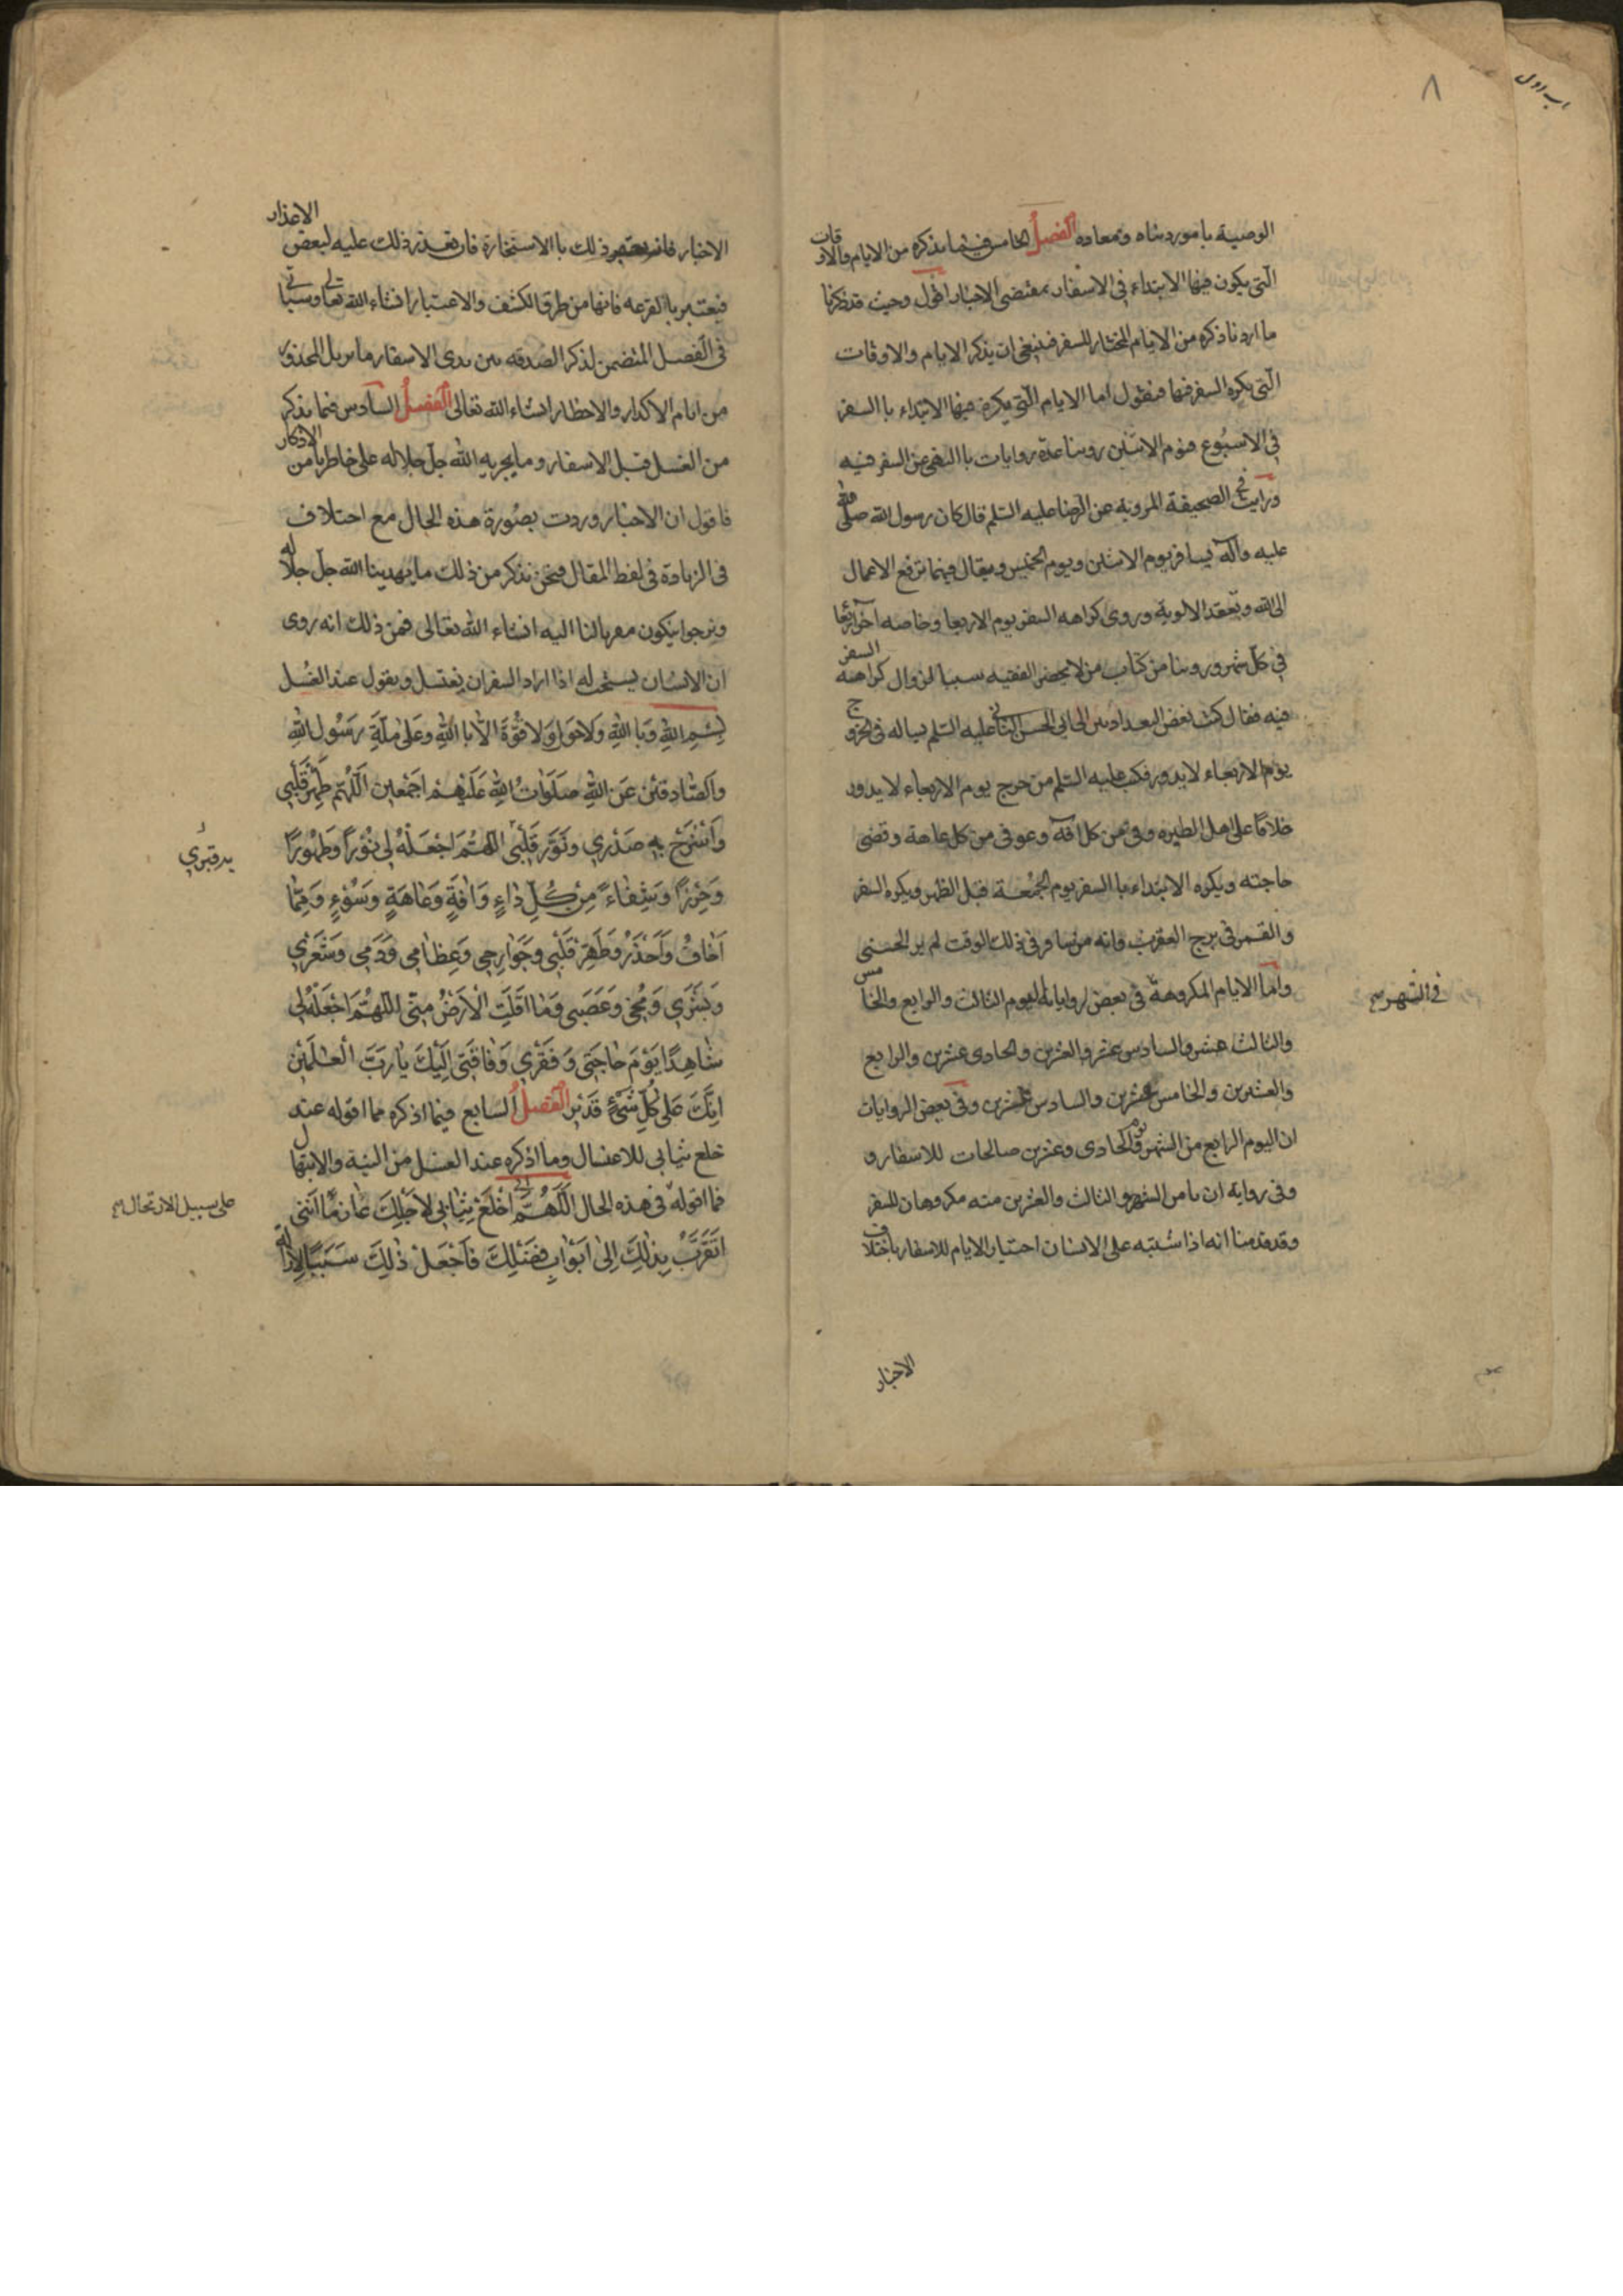 باب اول
٨
الوصية بامور دنياه ومعاده الفصل الخامس فيما نذكره من الايام والاوقات
الّتى يكون فيها الابتداء فى الاسفار بمقتضى الاخبار اقول وحيث قد ذكرنا
ما اردنا ذكره من الايام المختار للسفر فينبغى ان يذكر الايام والاوقات
الّتى يكره السفر فيها فنقول اما الايام الّتى يكره فيها الابتداء با السفر
فى الاسبُوع فيوم الاثنين روينا عدّة روايات با النهى عن السفر فيه
ورايت فى الصحيفة المروية عن الرّضا عليه السّلم قال كان رسول الله صلى الله
عليه وآله يسافر يوم الاثنين ويوم الخميس ويقال فيهما ترفع الاعمال
الى الله وتعقد الالوية وروى كراهه السفر يوم الاربعا وخاصه آخر اربعا
فى كلّ شهر وروينا من كتاب من لا يحضر الفقيه سببا لزوال كراهه السفر
فيه فقال كتب بعض البغداديين الى ابى الحسن الثانى عليه السّلم يساله فى الخروج
يوم الاربعاء لا يدور فكتب عليه السّلم من خرج يوم الاربعاء لا يدور
خلافا على اهل الطيره وقى من كل افة وعوفى من كل عاهة وقضى
حاجته ويكره الابتداء با السفر يوم الجُمُعة قبل الظهر ويكره السفر
والقمر فى برج العقرب وانه من سافر فى ذلك الوقت لم ير الحسنى
وامّا الايام المكروهة فى بعض روايات اليوم الثالث والرابع والخامس
فى الشهر صح
والثالث عشر والسادس عشر والعشرين والحادى عشرين والرابع
والعشرين والخامس عشرين والسادس عشرين وفى بعض الروايات
ان اليوم الرابع من الشهر ويوم الحادى وعشرين صالحات للاسفار و
وفى رواية ان ثامن الشهر والثالث والعشرين منه مكروهان للسفر
وقد قدمنا انه اذا شتبه على الانسان اختيار الايام للاسفار باختلاف
الاخبار
الاخبار فانه يعتبر ذلك با الاستخارة فان تعذر ذلك عليه لبعض الاعذار
فيعتبر با القرعه فانها من طرق الكشف والاعتبار انشاء الله تعالى وسياتى
فى الفصل المتضمن لذكر الصدقه بين يدى الاسفار ما يزيل المحذور
من ايام الاكدار والاخطار انشاء الله تعالى الفصل السادس فيما نذكر
من الغسل قبل الاسفار وما يجريه الله جلّ جلاله على خاطرنا من الاذكار
فاقول ان الاخبار وردت بصُورة هذه الحال مع اختلاف
فى الزيادة فى لفظ المقال فنحن نذكر من ذلك ما يهدينا الله جلّ جلاله
ونرجوا يكون مقربا لنا اليه انشاء الله تعالى فمن ذلك انه روى
ان الانسان يستحب له اذا اراد السفر ان يغتسل ويقول عند الغُسل
بِسْمِ اللهِ وَبا اللهِ وَلاحَول وَلا قُوَّةَ الّا با اللهِ وَعَلى مِلَّةِ رَسُولِ اللهِ
وَالصّادقينَ عَنِ اللهِ صَلَواتُ اللهِ عَلَيْهِمْ اجَمْعين اَللّهُمَ طَهِّرْ قَلْبى
وَاشْرَحْ بِهِ صَدْرِي ونَوِّر قَلْبى اللهُمَ اجْعَلْهُ لى نُوْرًا وَطَهُورًا
به قبري
وَحِرْزًا وَشِفاءً مِنْ كُلِّ داءٍ وَافَةٍ وَعاهَةٍ وَسُوْءٍ وَمِمّا
اَخافُ وَاَحْذَرُ وَطَهِّرْ قَلْبى وَجَوارِحي وَعِظامي وَدَمي وَشَعْري
وَبَشَري وَمُخّي وَعَصَبى وَما اَقَلَّتِ الْاَرَضُ مِنّى اللّهُمَ اجْعَلْهُ لي
شاهِدًا يَوْمَ حاجَتى وَفَقْري وَفاقَتى اِلَيْكَ يا رَبَّ الْعالَمَيْنَ
اِنَّكَ عَلى كُلِّ شَيْءٍ قَدْير الفصل السابع فيما اذكره مما اقوله عند
خلع ثيابى للاغتسال وما اذكره عند الغسل من النية والابتهال
فما اقوله فى هذه الحال اَللّهُمَّ انّي اخْلَعُ ثِيابى لاَجْلِكَ عازمًا اَنَّنى
على سبيل الارتحال صح
اتَقَرَّبُ بِذلِكَ اِلى ابْوابِ فَضْلِكَ فَاَجْعَلْ ذلِكَ سَبَبًا لِازالة